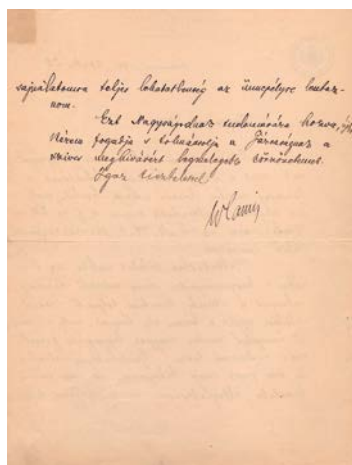 sajnálatomra teljes lehetetlenség az ünnepélyre leutaz-
nom.
Ezt Nagyságodnak tudomására hozva,
kérem fogadja s tolmácsolja a Társaságnak a
szives meghívásért legmelegebb köszönetemet.
Igaz tisztelettel